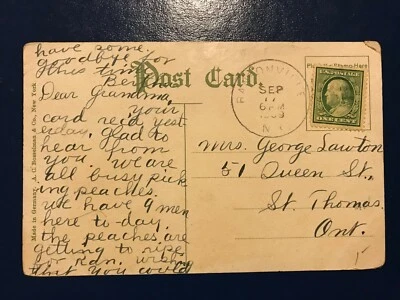 have some.
goodbye for
this time
Post Card.
Dear Grandma,
your
card rec'd yest
erday, glad to
hear from
you. we are
all busy pick
ing peaches.
we have 9 men
here to-day.
the peaches are
getting to ripe
for rdn. wish
that you could
Made in Germany. A. C. Bosselman & Co., New York
SEP
17
6 PM
1909
N.Y.
U.S. POSTAGE
ONE CENT
Mrs. George Lawton
51 Queen St.
St. Thomas
Ont.